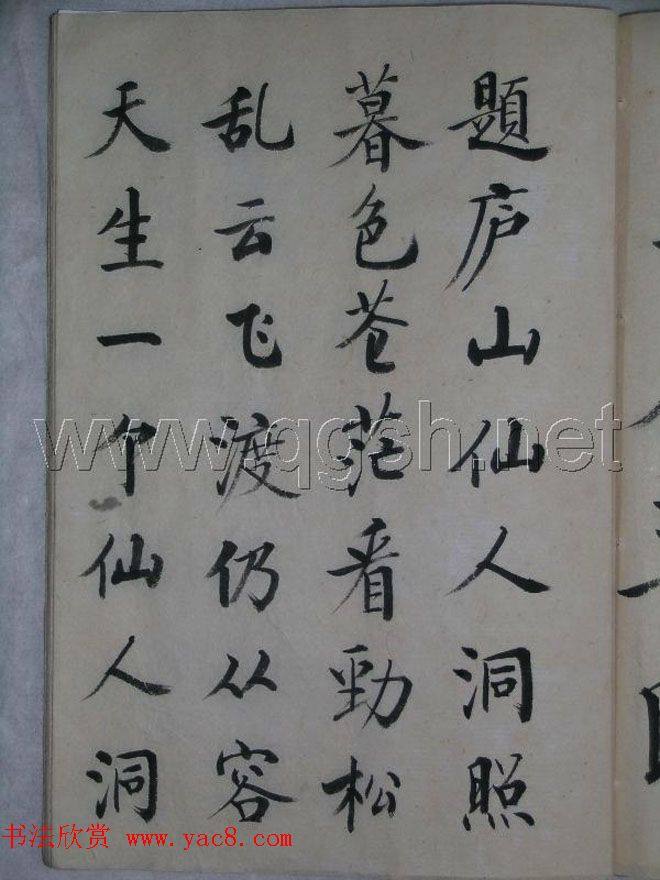 題庐山仙人洞照
暮色苍茫看勁松
乱云飞渡仍从容
天生一个仙人洞
www.qgsh.net
书法欣赏 www.yac8.com